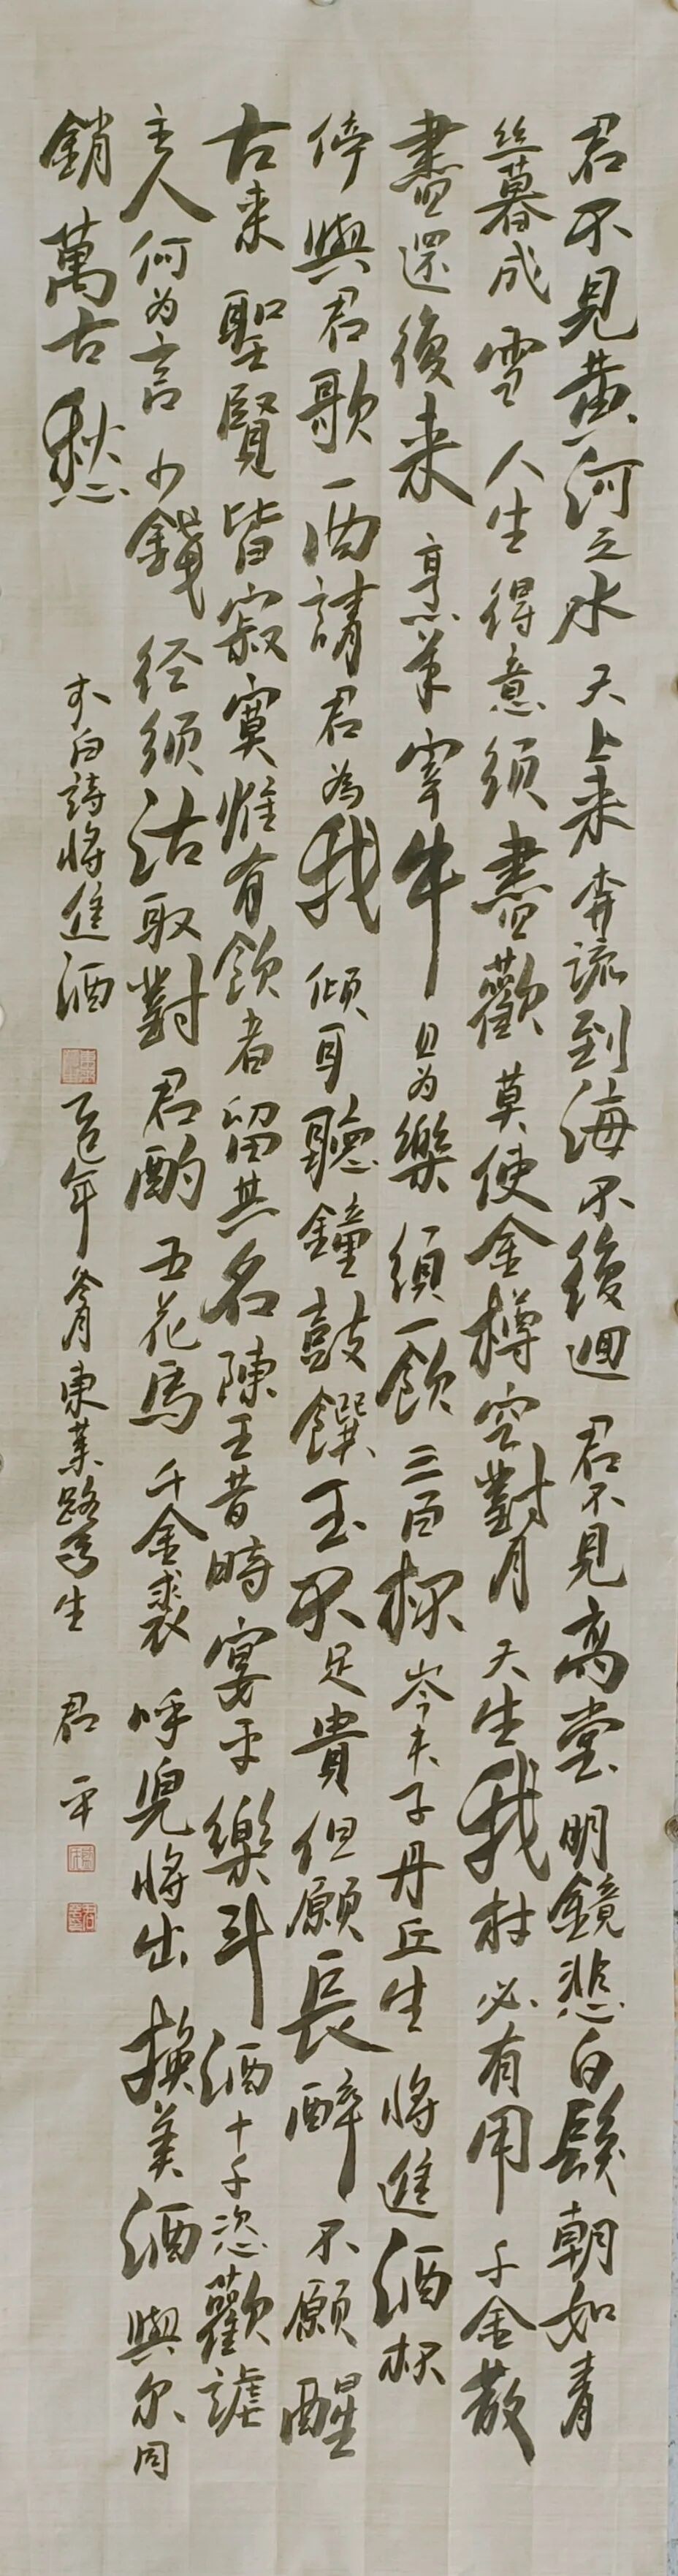 君不見黃河之水天上来奔流到海不復迴君不見高堂明鏡悲白髮朝如青
丝暮成雪人生得意须盡歡莫使金樽空對月天生我材必有用千金散
盡還復来烹羊宰牛且为樂須一飲三百杯岑夫子丹丘生將進酒杯
停與君歌一曲請君為我傾耳聽鐘鼓饌玉不足貴但願長醉不願醒
古来聖賢皆寂寞惟有飲者留其名陳王昔時宴平樂斗酒十千恣歡謔
主人何为言少錢径须沽取對君酌五花馬千金裘呼兒將出換美酒與尔同
銷萬古愁
李白詩將進酒 乙巳年 東業路 生 君平